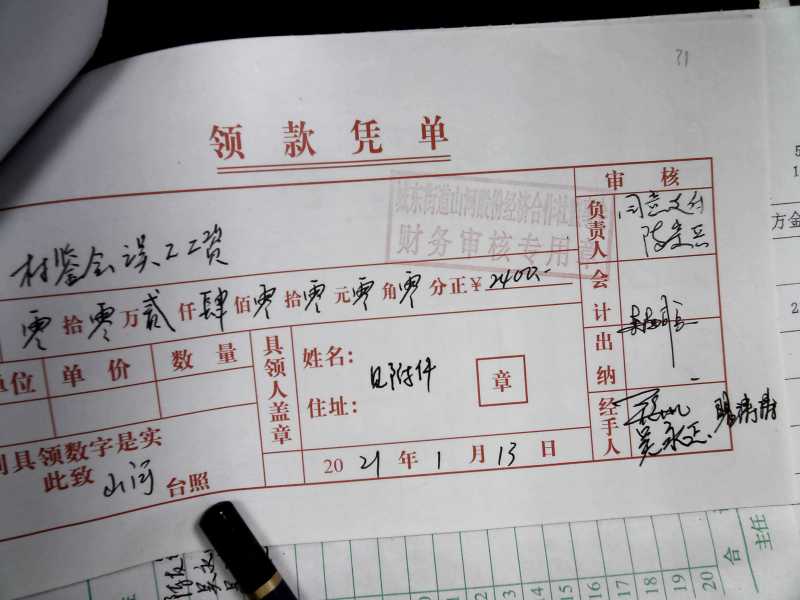 31
领款凭单
审核
城东街道山河股份经济合作社
财务审核专用章
负责人 同意支付
村鉴会误工工资
会计
零拾零万贰仟肆佰零拾零元零角零分正￥2400.-
单位 单价 数量
具领人盖章
姓名：
见附件
章
住址：
出纳
经手人
吴永正
具领数字是实
此致 山河 台照
2021年1月13日
15 16 17 18 19 20
合
主任
方金